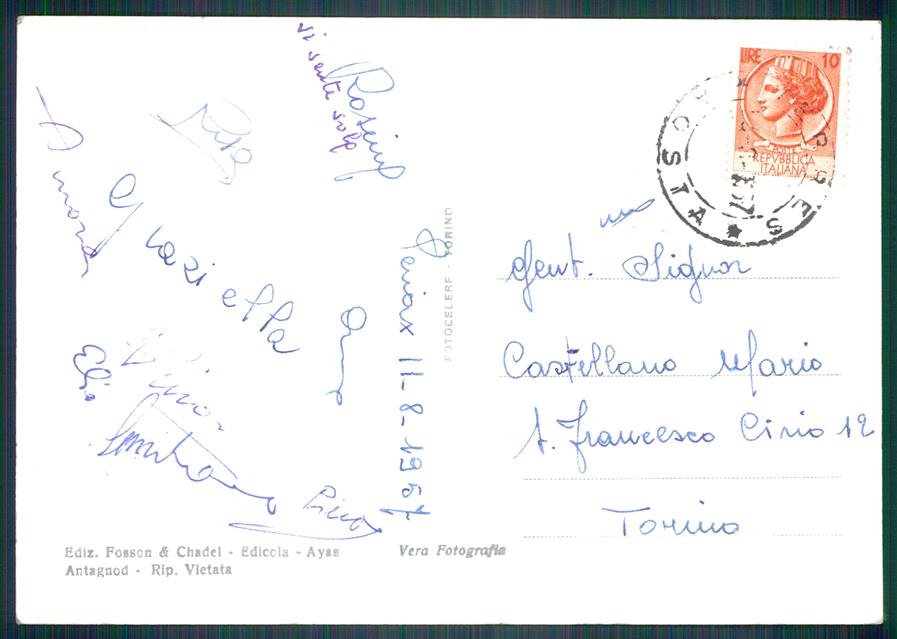 vi sente solo
Rosina
Rita
Graziella
Elio
Pino
Periax 11-8-1957
FOTOCELERE - TORINO
LIRE 10
POSTE
REPVBBLICA
ITALIANA
AOSTA
Gent. Signor
Castellano Mario
S. Francesco Cirio 12
Torino
Ediz. Fosson & Chadel - Edicola - Ayas
Antagnod - Rip. Vietata
Vera Fotografia